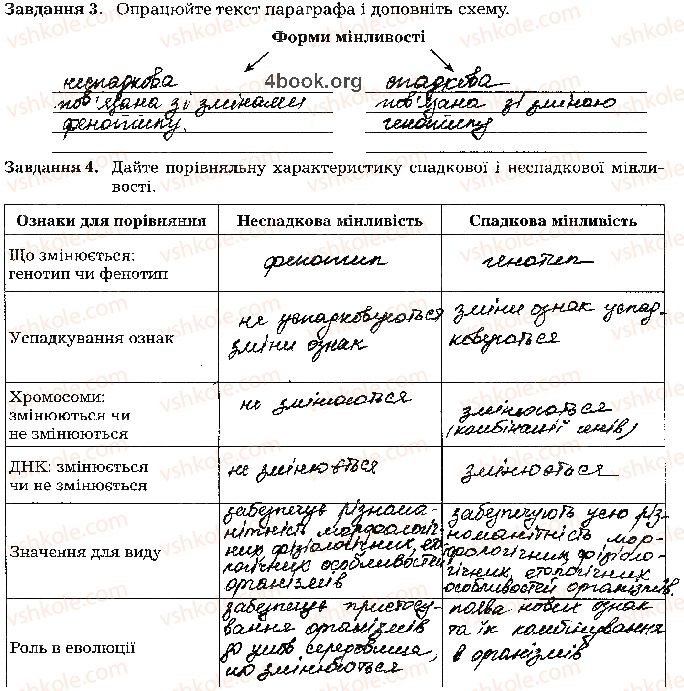 Завдання 3. Опрацюйте текст параграфа і доповніть схему.
Форми мінливості
4book.org
неспадкова
пов'язана зі змінами
фенотипу.
спадкова
пов'язана зі зміною
генотипу
Завдання 4. Дайте порівняльну характеристику спадкової і неспадкової мінли-
вості.
Ознаки для порівняння
Неспадкова мінливість
Спадкова мінливість
Що змінюється:
генотип чи фенотип
фенотип
генотеп
Успадкування ознак
не успадковуються
зміни ознак
зміни ознак успад-
ковуються
Хромосоми:
змінюються чи
не змінюються
не змінюються
змінюються
(комбінації генів)
ДНК: змінюється
чи не змінюється
не змінюється
змінюється
Значення для виду
забезпечує різнома-
нітність морфологіч-
них, фізіологічних, ек-
логічних особливостей
організмів
забезпечують усю різ-
номанітність мор-
фологічних, фізіоло-
гічних, етологічних
особливостей організмів.
Роль в еволюції
забезпечує пристосу-
вання організмів
до умов середовища,
що змінюються
поява нових ознак
та їх комбінування
в організмів
vshkole.com